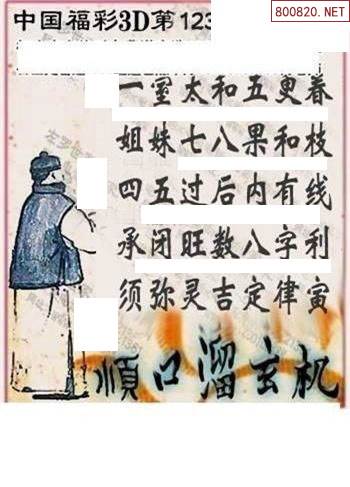 800820.NET
中国福彩3D第123
一室太和五更春
姐妹七八果和枝
四五过后内有线
承闭旺数八字利
须弥灵吉定律寅
顺口溜玄机